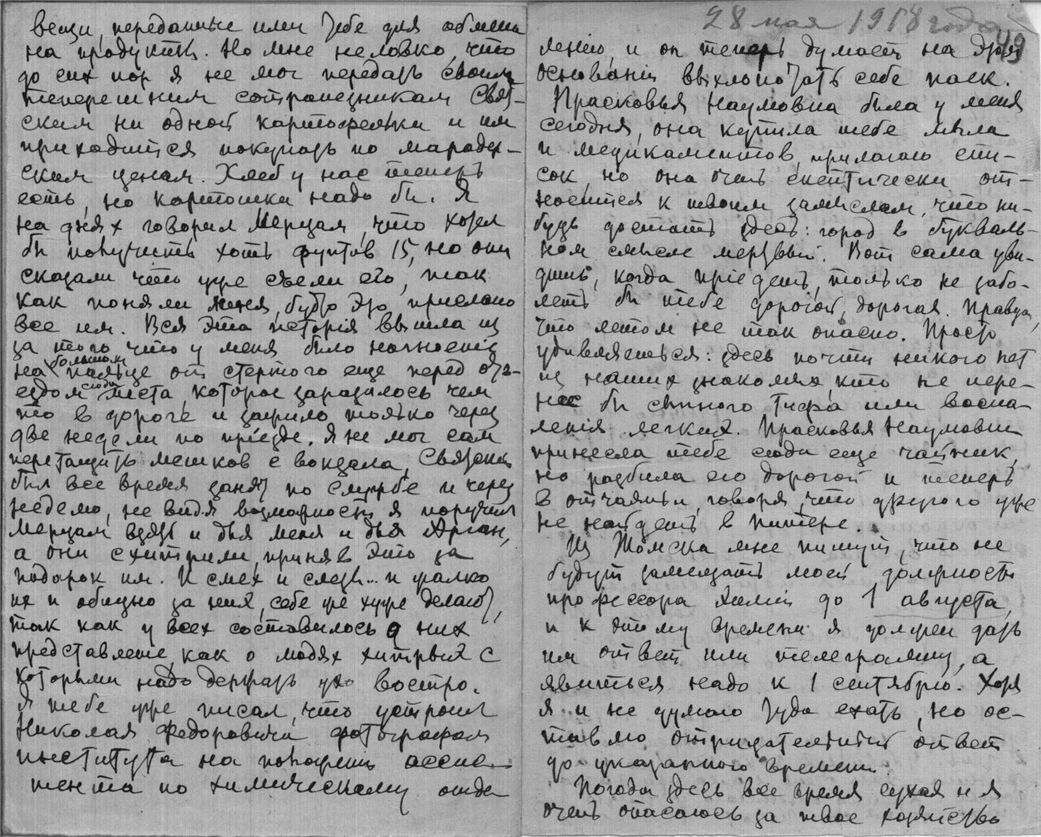 вещи, переданные ими тебе для обмена
на продукты. Но мне неловко, что
до сих пор я не мог передать своим
теперешним сотрапезникам Свят-
ским ни одной картофелки и им
приходится покупать по мародер-
ским ценам. Хлеб у нас теперь
есть, но картошки надо бы. Я
на днях говорил Мерцам, что хотел
бы получить хоть фунтов 15, но они
сказали что уже съели его, так
как поняли меня, будто это прислано
все им. Вся эта исторія вышла из
за того что у меня было нагноеніе
на большом пальце от стертого еще перед отъ-
ездом сюда места которое заразилось чем
то в дороге и зажило только через
две недели по пріезде. Я не мог сам
перетащить мешков с вокзала, Святский
был все время занят по службе и через
неделю, не видя возможности я поручил
Мерцам взять и для меня и для
а они схитрили, приняв это за
подарок им. И смех и слезы... и жалко
их и обидно за них, себе же хуже делают,
так как у всех составилось о них
представление, как о людях хитрых с
которыми надо держать ухо востро.
Я тебе уже писал, что устроил
Николая Федоровича фотографом
института на положении ассис-
тента по химическому отде
28 мая 1918 года
49
лению, и он теперь думает на этом
основаніи выхлопотать себе паек.
Прасковья Наумовна была у меня
сегодня, она купила тебе мыла
и медикаментов, прилагаю спи-
сок, но она очень скептически от-
носится к твоим замыслам, что ни-
будь достать здесь: город в букваль-
ном смысле мертвый. Вот сама уви-
дишь, когда пріедешь, только не забо-
леть бы тебе дорогой, дорогая. Правда,
что летом не так опасно. Просто
удивляешься: здесь почти никого нет
из наших знакомых кто не пере-
нес бы сыпного тифа или воспа-
ленія легких. Прасковья Наумовна
принесла тебе сюда еще чайник,
но разбила его дорогой и теперь
в отчаяньи, говоря, что другого уже
не найдешь в Питере.
Из Томска мне пишут, что не
будут замещать моей должности
профессора химіи до 1 августа,
и к этому времени я должен дать
им ответ или телеграмму, а
явиться надо к 1 сентябрю. Хотя
я и не думаю туда ехать, но ос-
тавлю отрицательный ответ
до указанного времени.
Погода здесь все время сухая и я
очень опасаюсь за твое хозяйство